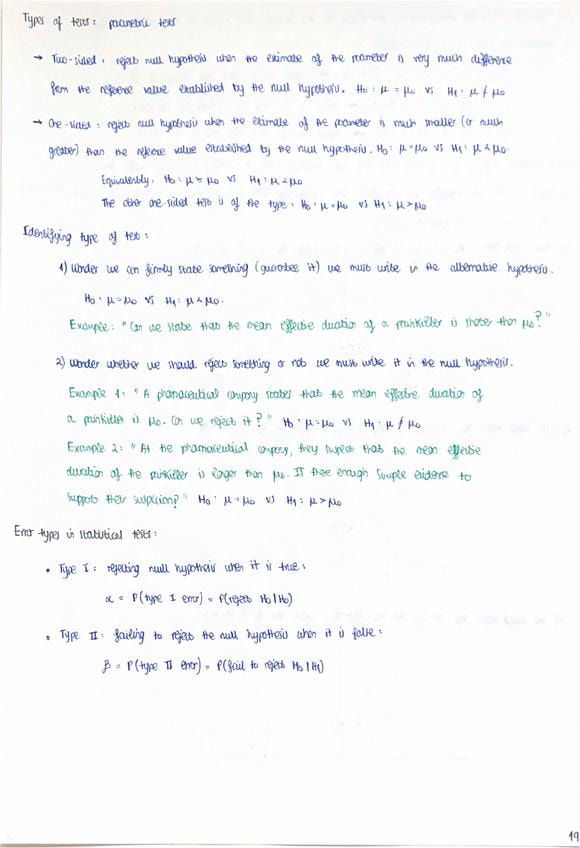 Types of tests: parametric tests
→ Two-sided: reject null hypothesis when the estimate of the parameter is very much difference
from the reference value established by the null hypothesis. H₀: μ = μ₀ vs H₁: μ ≠ μ₀
→ One-sided: reject null hypothesis when the estimate of the parameter is much smaller (or much
greater) than the reference value established by the null hypothesis. H₀: μ = μ₀ vs H₁: μ < μ₀.
Equivalently. H₀: μ ≥ μ₀ vs H₁: μ < μ₀
The other one-sided test is of the type: H₀: μ = μ₀ vs H₁: μ > μ₀
Identifying type of test:
1) Wonder we can firmly state something (guarantee it) we must write in the alternative hypothesis.
H₀: μ = μ₀ vs H₁: μ < μ₀.
Example: "Can we state that the mean effective duration of a painkiller is shorter than μ₀?"
2) Wonder whether we should reject something or not we must write it in the null hypothesis.
Example 1: "A pharmaceutical company states that the mean effective duration of
a painkiller is μ₀. Can we reject it?" H₀: μ = μ₀ vs H₁: μ ≠ μ₀
Example 2: "At the pharmaceutical company, they suspect that the mean effective
duration of the painkiller is larger than μ₀. Is there enough sample evidence to
support their suspicion?" H₀: μ = μ₀ vs H₁: μ > μ₀
Error types in statistical tests:
• Type I: rejecting null hypothesis when it is true:
α = P(type I error) = P(reject H₀ | H₀)
• Type II: failing to reject the null hypothesis when it is false:
β = P(type II error) = P(fail to reject H₀ | H₁)
19